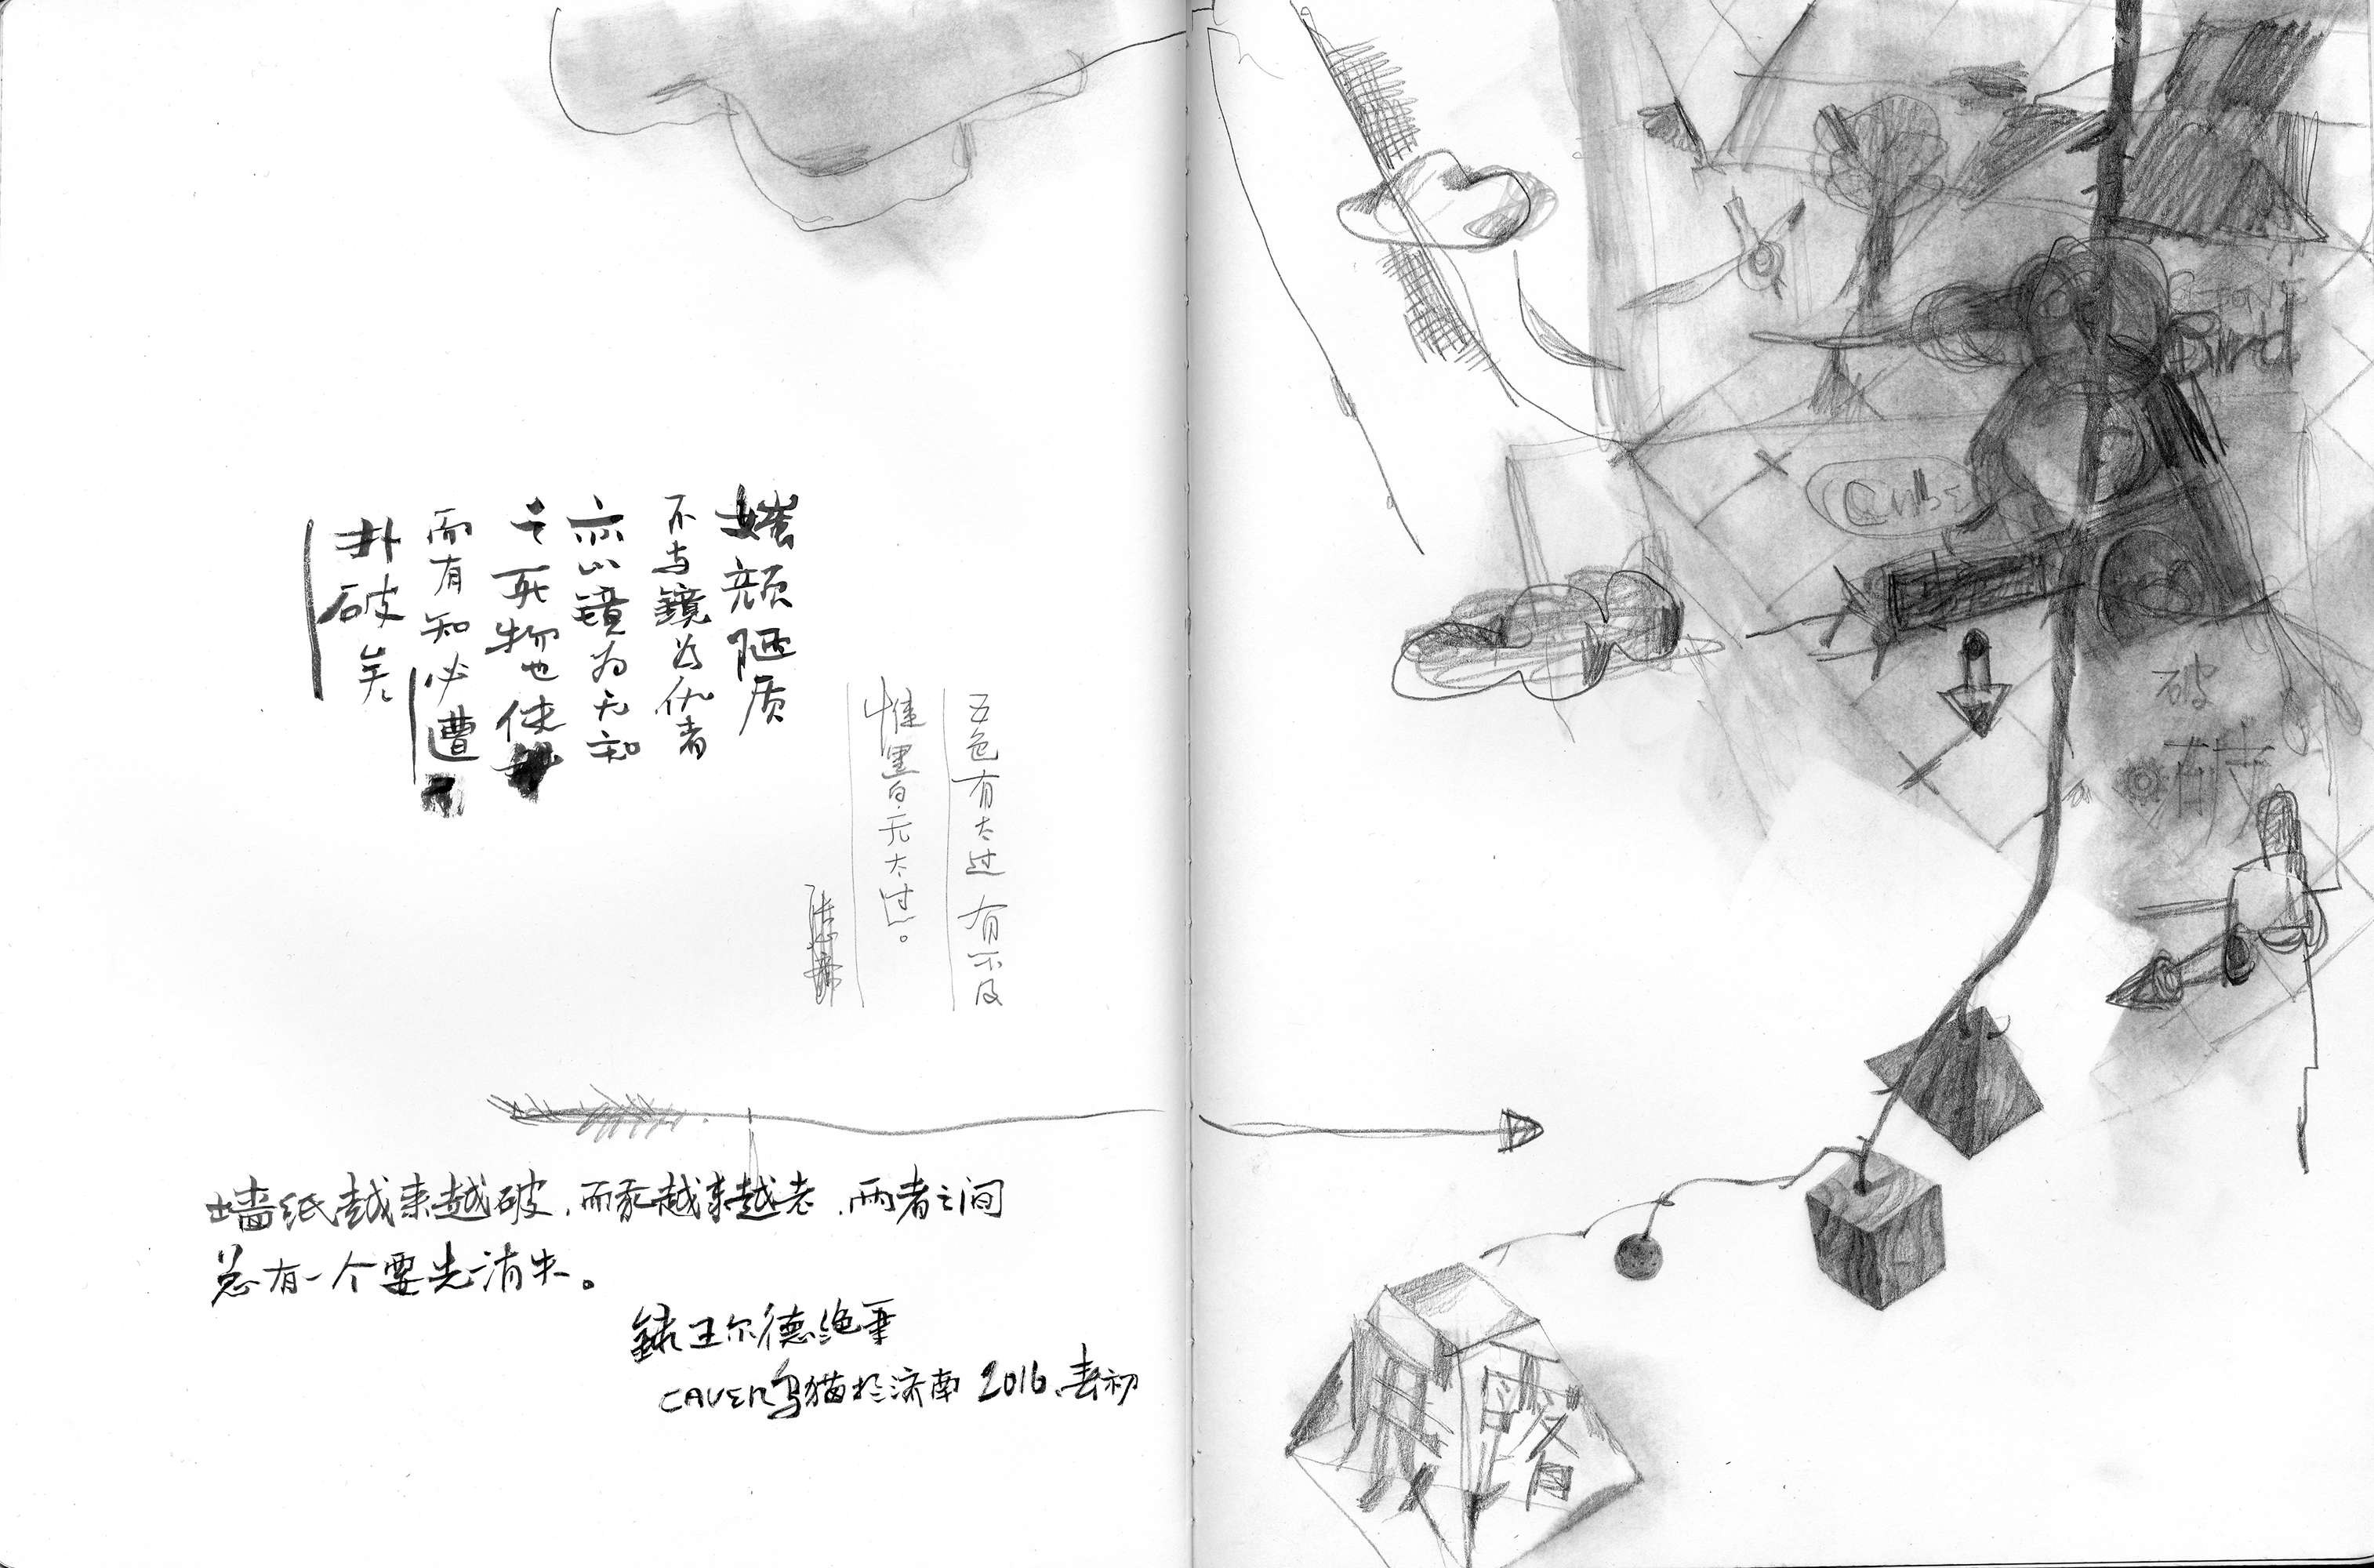 媸颜陋质
不与镜为仇者
亦以镜为无知
之死物也使
而有知必遭
扑破矣
五色有太过有不及
惟黑白无太过。
张心斋
墙纸越来越破,而我越来越老,两者之间
总有一个要先消失。
録王尔德绝笔
CAVER乌猫於济南 2016.春初
破